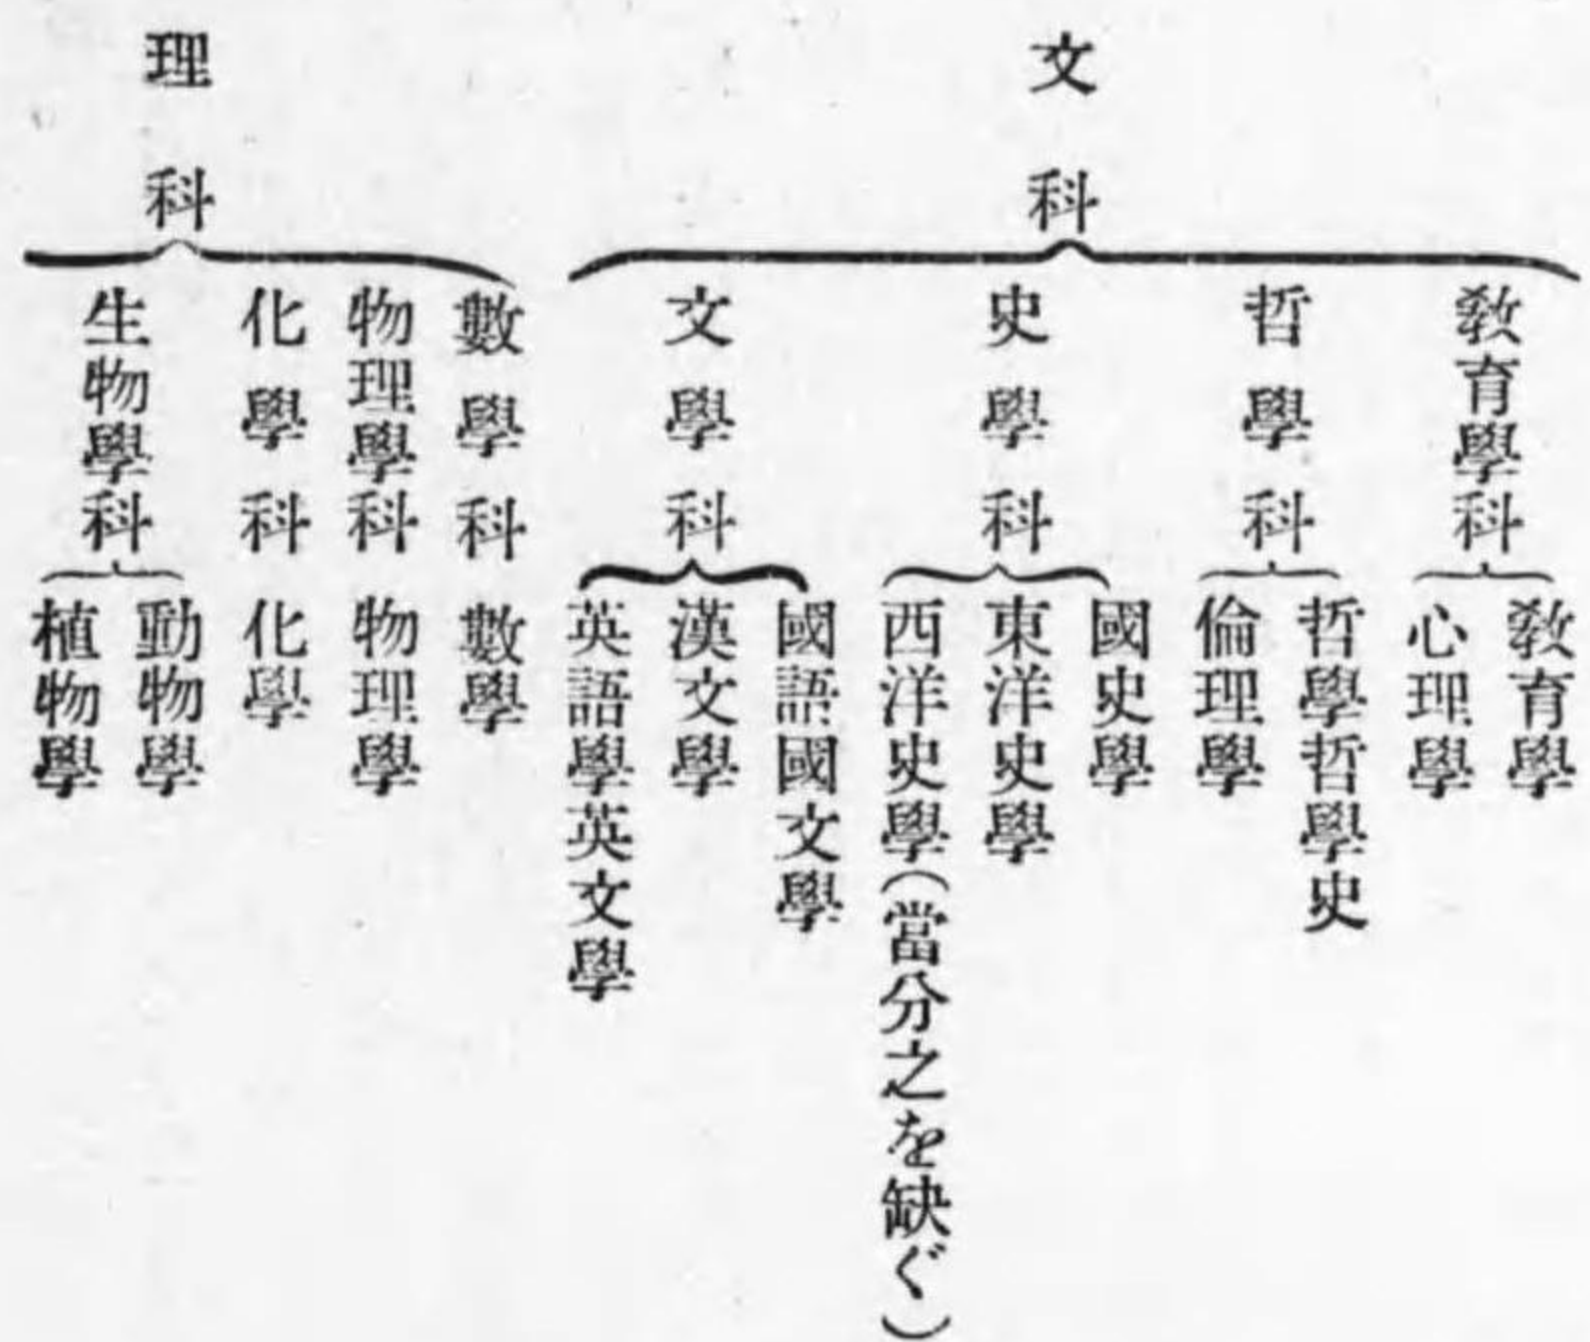 文科
教育學科
教育學
心理學
哲學科
哲學哲學史
倫理學
史學科
國史學
東洋史學
西洋史學(當分之を缺ぐ)
文學科
國語國文學
漢文學
英語學英文學
理科
數學科
數學
物理學科
物理學
化學科
化學
生物學科
動物學
植物學